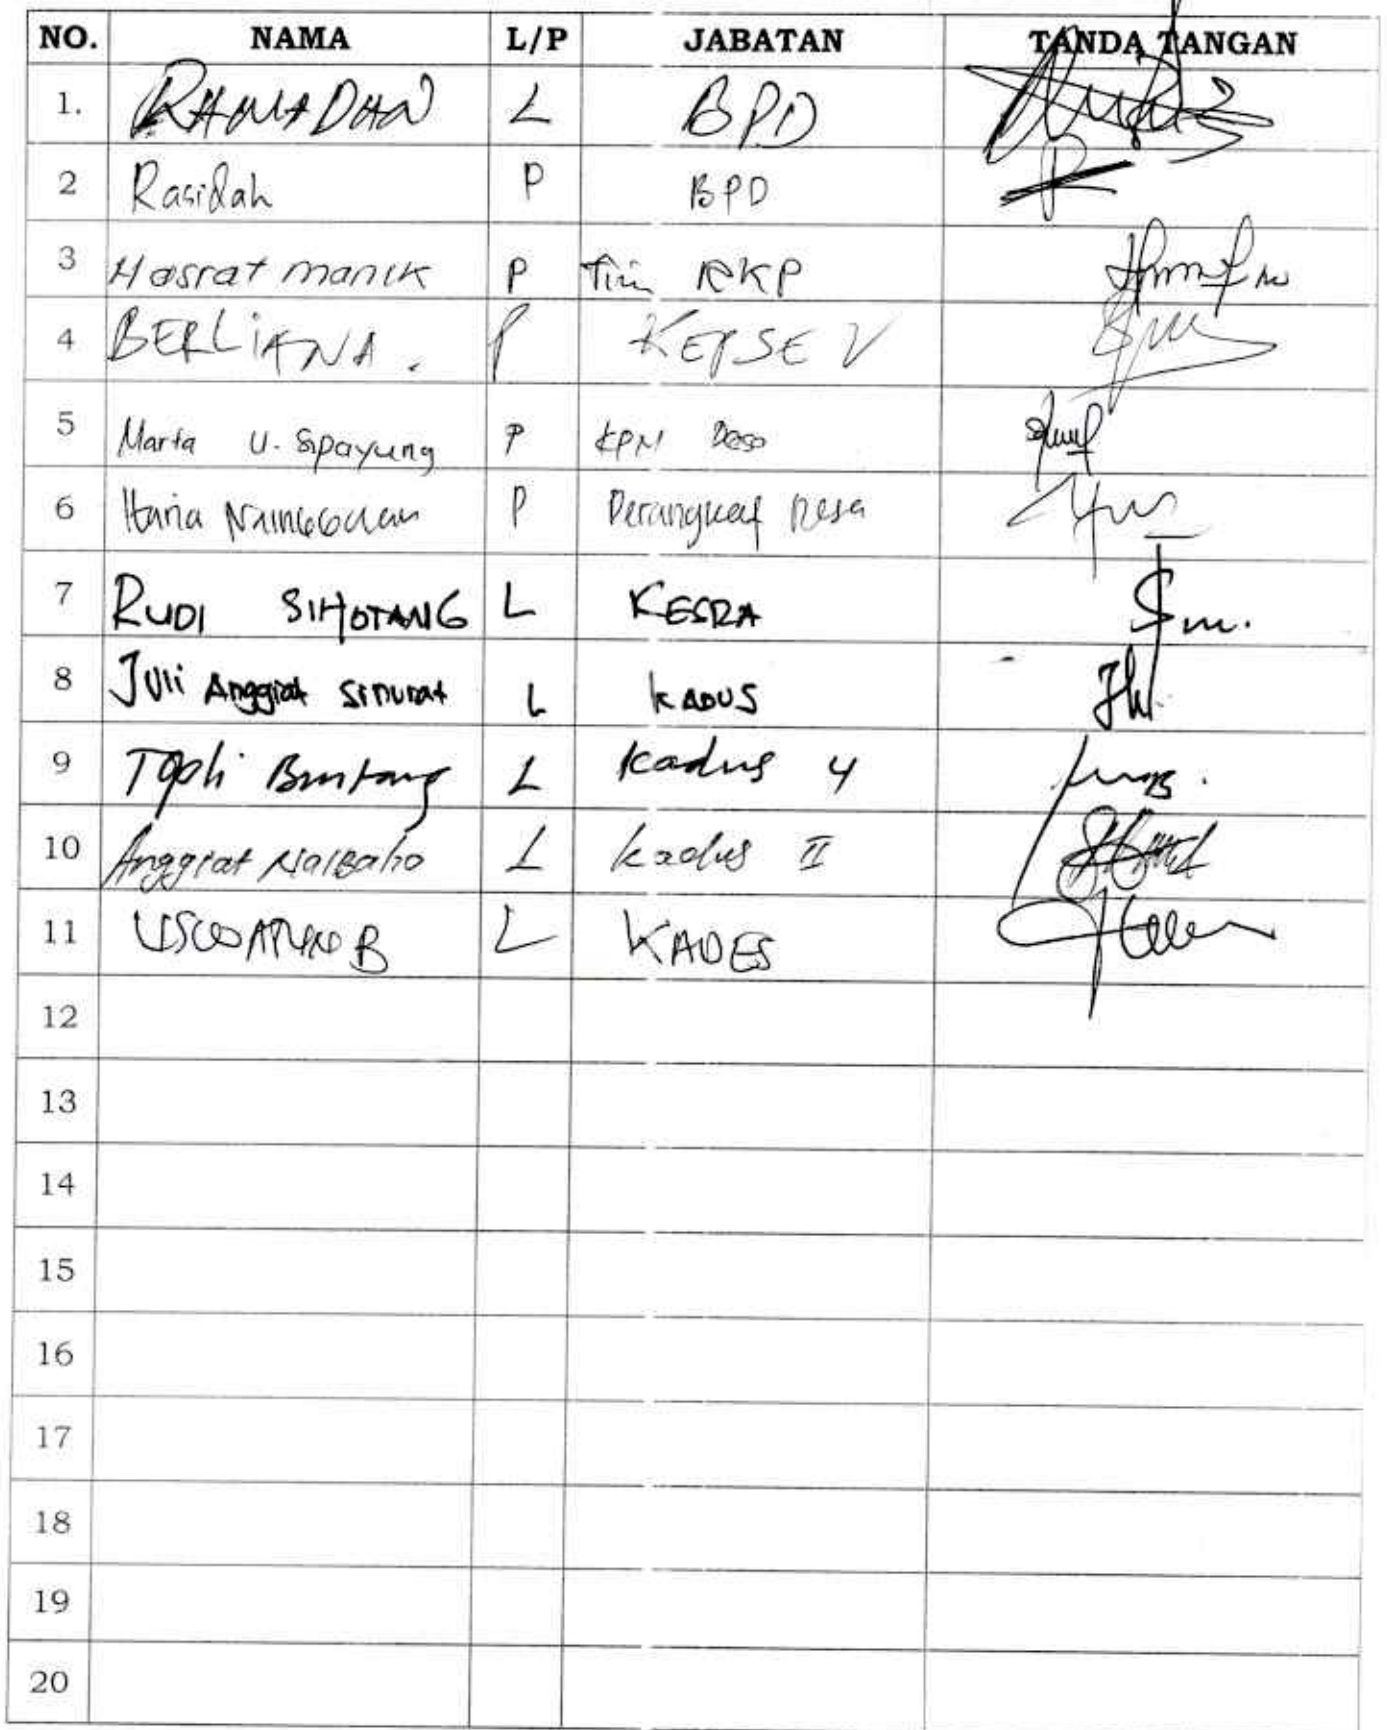 NO. NAMA L/P JABATAN TANDA TANGAN
1. RAMADHAN L BPD
2 Rasidah P BPD
3 Hasrat manik P Tim RKP
4 BERLIANA. P
5 Marta U. Sipayung P KPM Desa
6 Haria Nainggolan P Perangkat Desa
7 RUDI SIHOTANG L KESRA
8 Juli Anggiat Sinurat L KADUS
9 Topli Bintang L Kadus 4
10 Anggiat Naibaho L Kadus II
11 L KADES
12
13
14
15
16
17
18
19
20